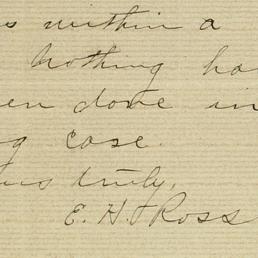 s within a
Nothing ha
en done in
g case.
urs truly,
E. H. Ross